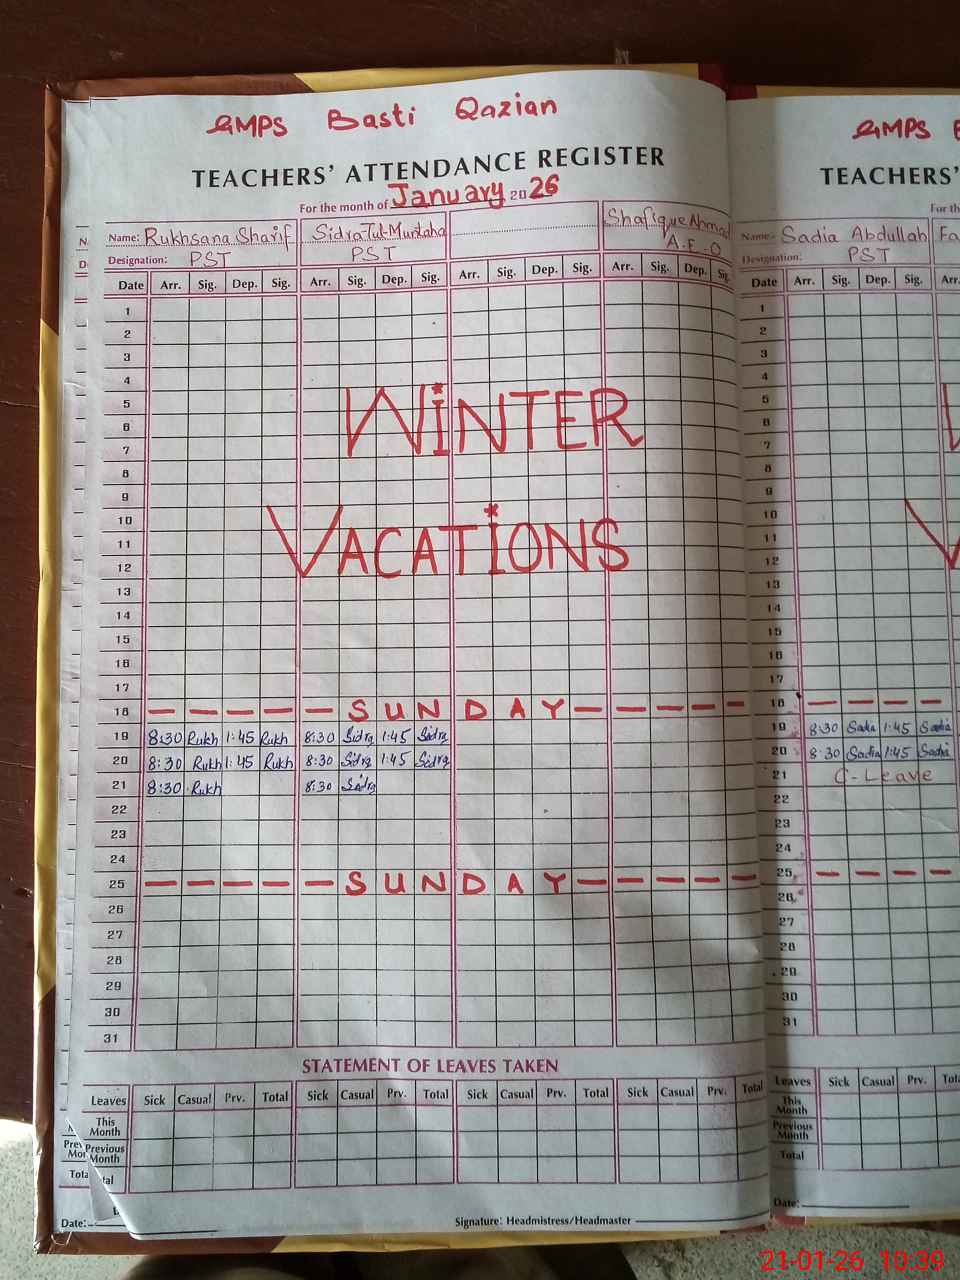 GMPS Basti Qazian
TEACHERS' ATTENDANCE REGISTER
For the month of January 2026
Name: Rukhsana Sharif Sidra-Tul-Muntaha Shafique Ahmad
Designation: PST PST A.E.O
Date Arr. Sig. Dep. Sig. Arr. Sig. Dep. Sig. Arr. Sig. Dep. Sig. Arr. Sig. Dep. Sig.
1
2
3
4
5
6
7
8
9
10
11
12
13
14
15
16
17
WINTER
VACATIONS
18 SUNDAY
19 8:30 Rukh 1:45 Rukh 8:30 Sidra 1:45 Sidra
20 8:30 Rukh 1:45 Rukh 8:30 Sidra 1:45 Sidra
21 8:30 Rukh 8:30 Sidra
22
23
24
25 SUNDAY
26
27
28
29
30
31
STATEMENT OF LEAVES TAKEN
Leaves Sick Casual Prv. Total Sick Casual Prv. Total Sick Casual Prv. Total Sick Casual Prv. Total
This Month
Previous Month
Total
Date:
Signature: Headmistress/Headmaster
GMPS
TEACHERS'
For the
Name:- Sadia Abdullah Fa
Designation: PST
Date Arr. Sig. Dep. Sig. Arr.
1
2
3
4
5
6
7
8
9
10
11
12
13
14
15
16
17
18
19 8:30 Sadia 1:45 Sadia
20 8:30 Sadia 1:45 Sadia
21 C-Leave
22
23
24
25
26
27
28
29
30
31
Leaves Sick Casual Prv. Tota
This Month
Previous Month
Total
Date:
21-01-26 10:39